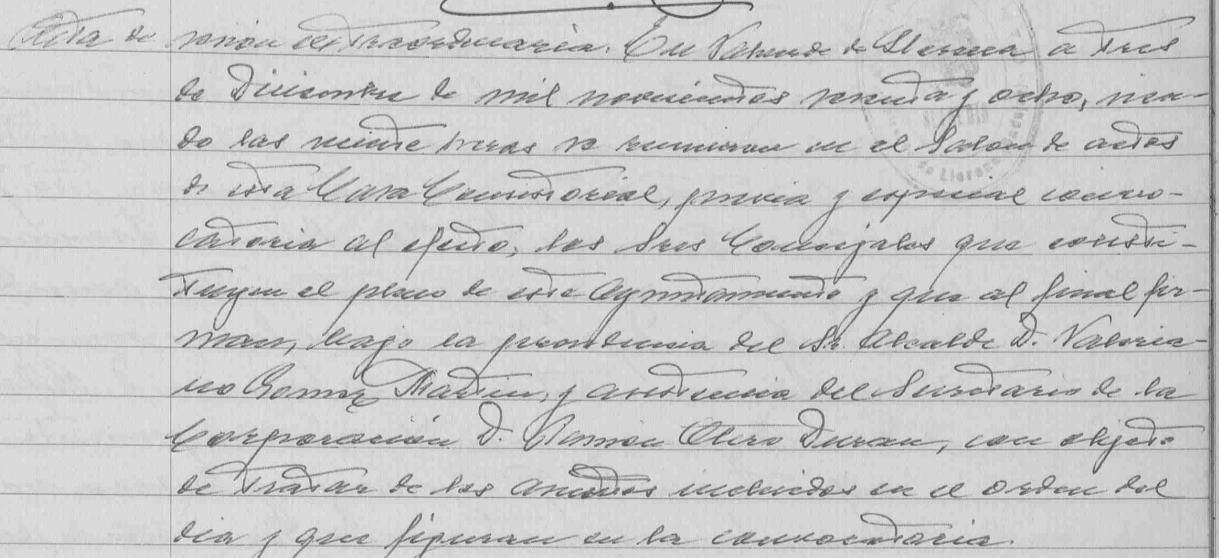 Acta de sesión extraordinaria. En Valverde de Llerena a tres
de Diciembre de mil novecientos sesenta y ocho, sien-
do las veinte horas se reunieron en el Salon de actos
de esta Casa Consistorial, previa y especial convo-
catoria al efecto, los Sres Concejales que consti-
tuyen el pleno de este Ayuntamiento y que al final fir-
man, bajo la presidencia del Sr. Alcalde D. Valeria-
no Gomez Martin, y asistencia del Secretario de la
Corporación D. Ramon Otero Duran, con objeto
de tratar de los asuntos incluidos en el orden del
dia y que figuran en la convocatoria.
de Llerena